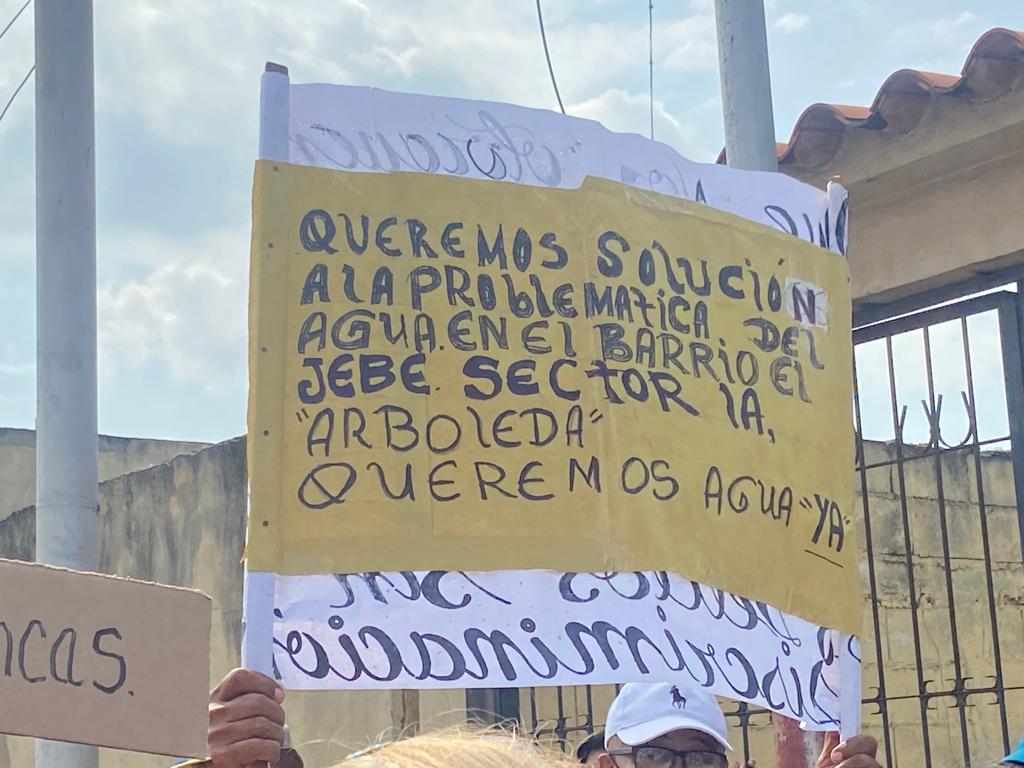 QUEREMOS SOlUCIÓN
A lA PROblEMATICA DEl
AGUA. EN El BARRIO El
JEBE. SECTOR lA,
"ARBOlEDA"
QUEREMOS AGUA "YA"
ncas.